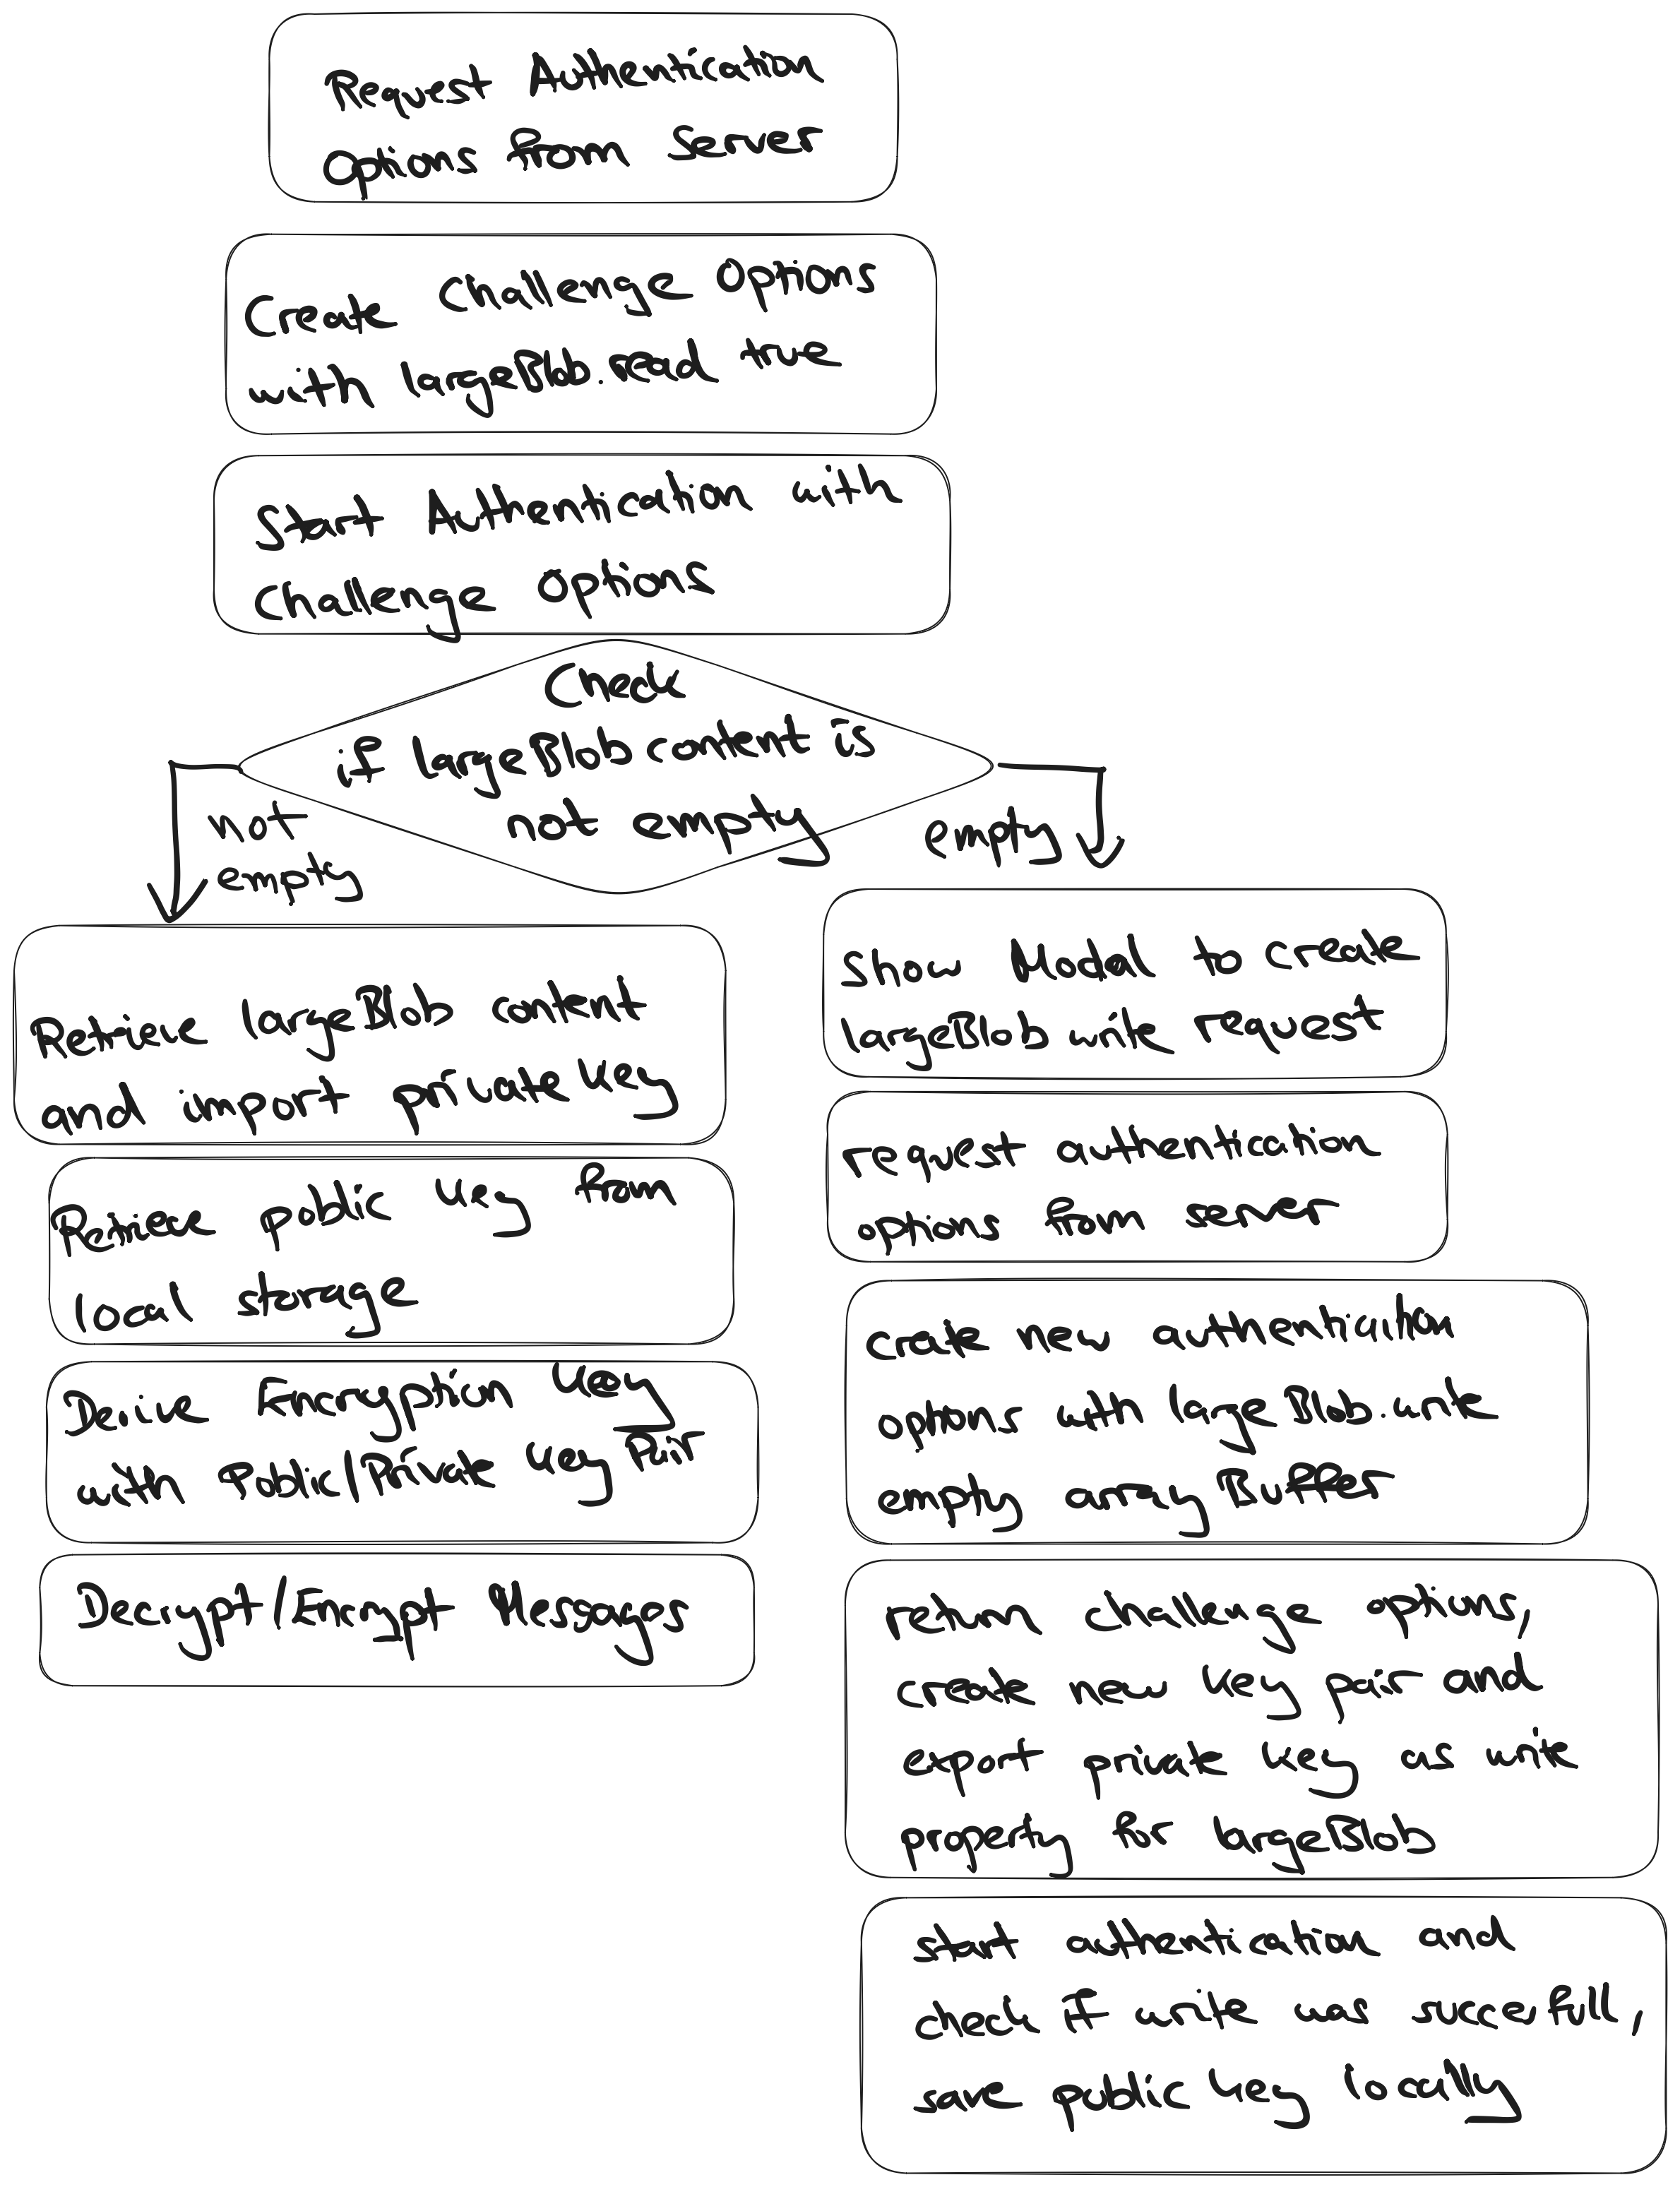 Request Authentication
Options from Server
Create Challenge Options
with largeBlob.read true
Start Authentication with
Challenge Options
Check
if largeBlob content is
not empty
not
empty
empty
Retrieve largeBlob content
and import private key
Retriece public key from
local storage
Derive Encryption Key
with Public/Private Key Pair
Decrypt/Encrypt Messages
Show Modal to create
largeBlob write request
request authentication
options from server
create new authentication
options with largeBlob.write
empty array Buffer
return challenge options,
create new key pair and
export private key as write
property for largeBlob
start authentication and
check if write was succesfull,
save public key locally